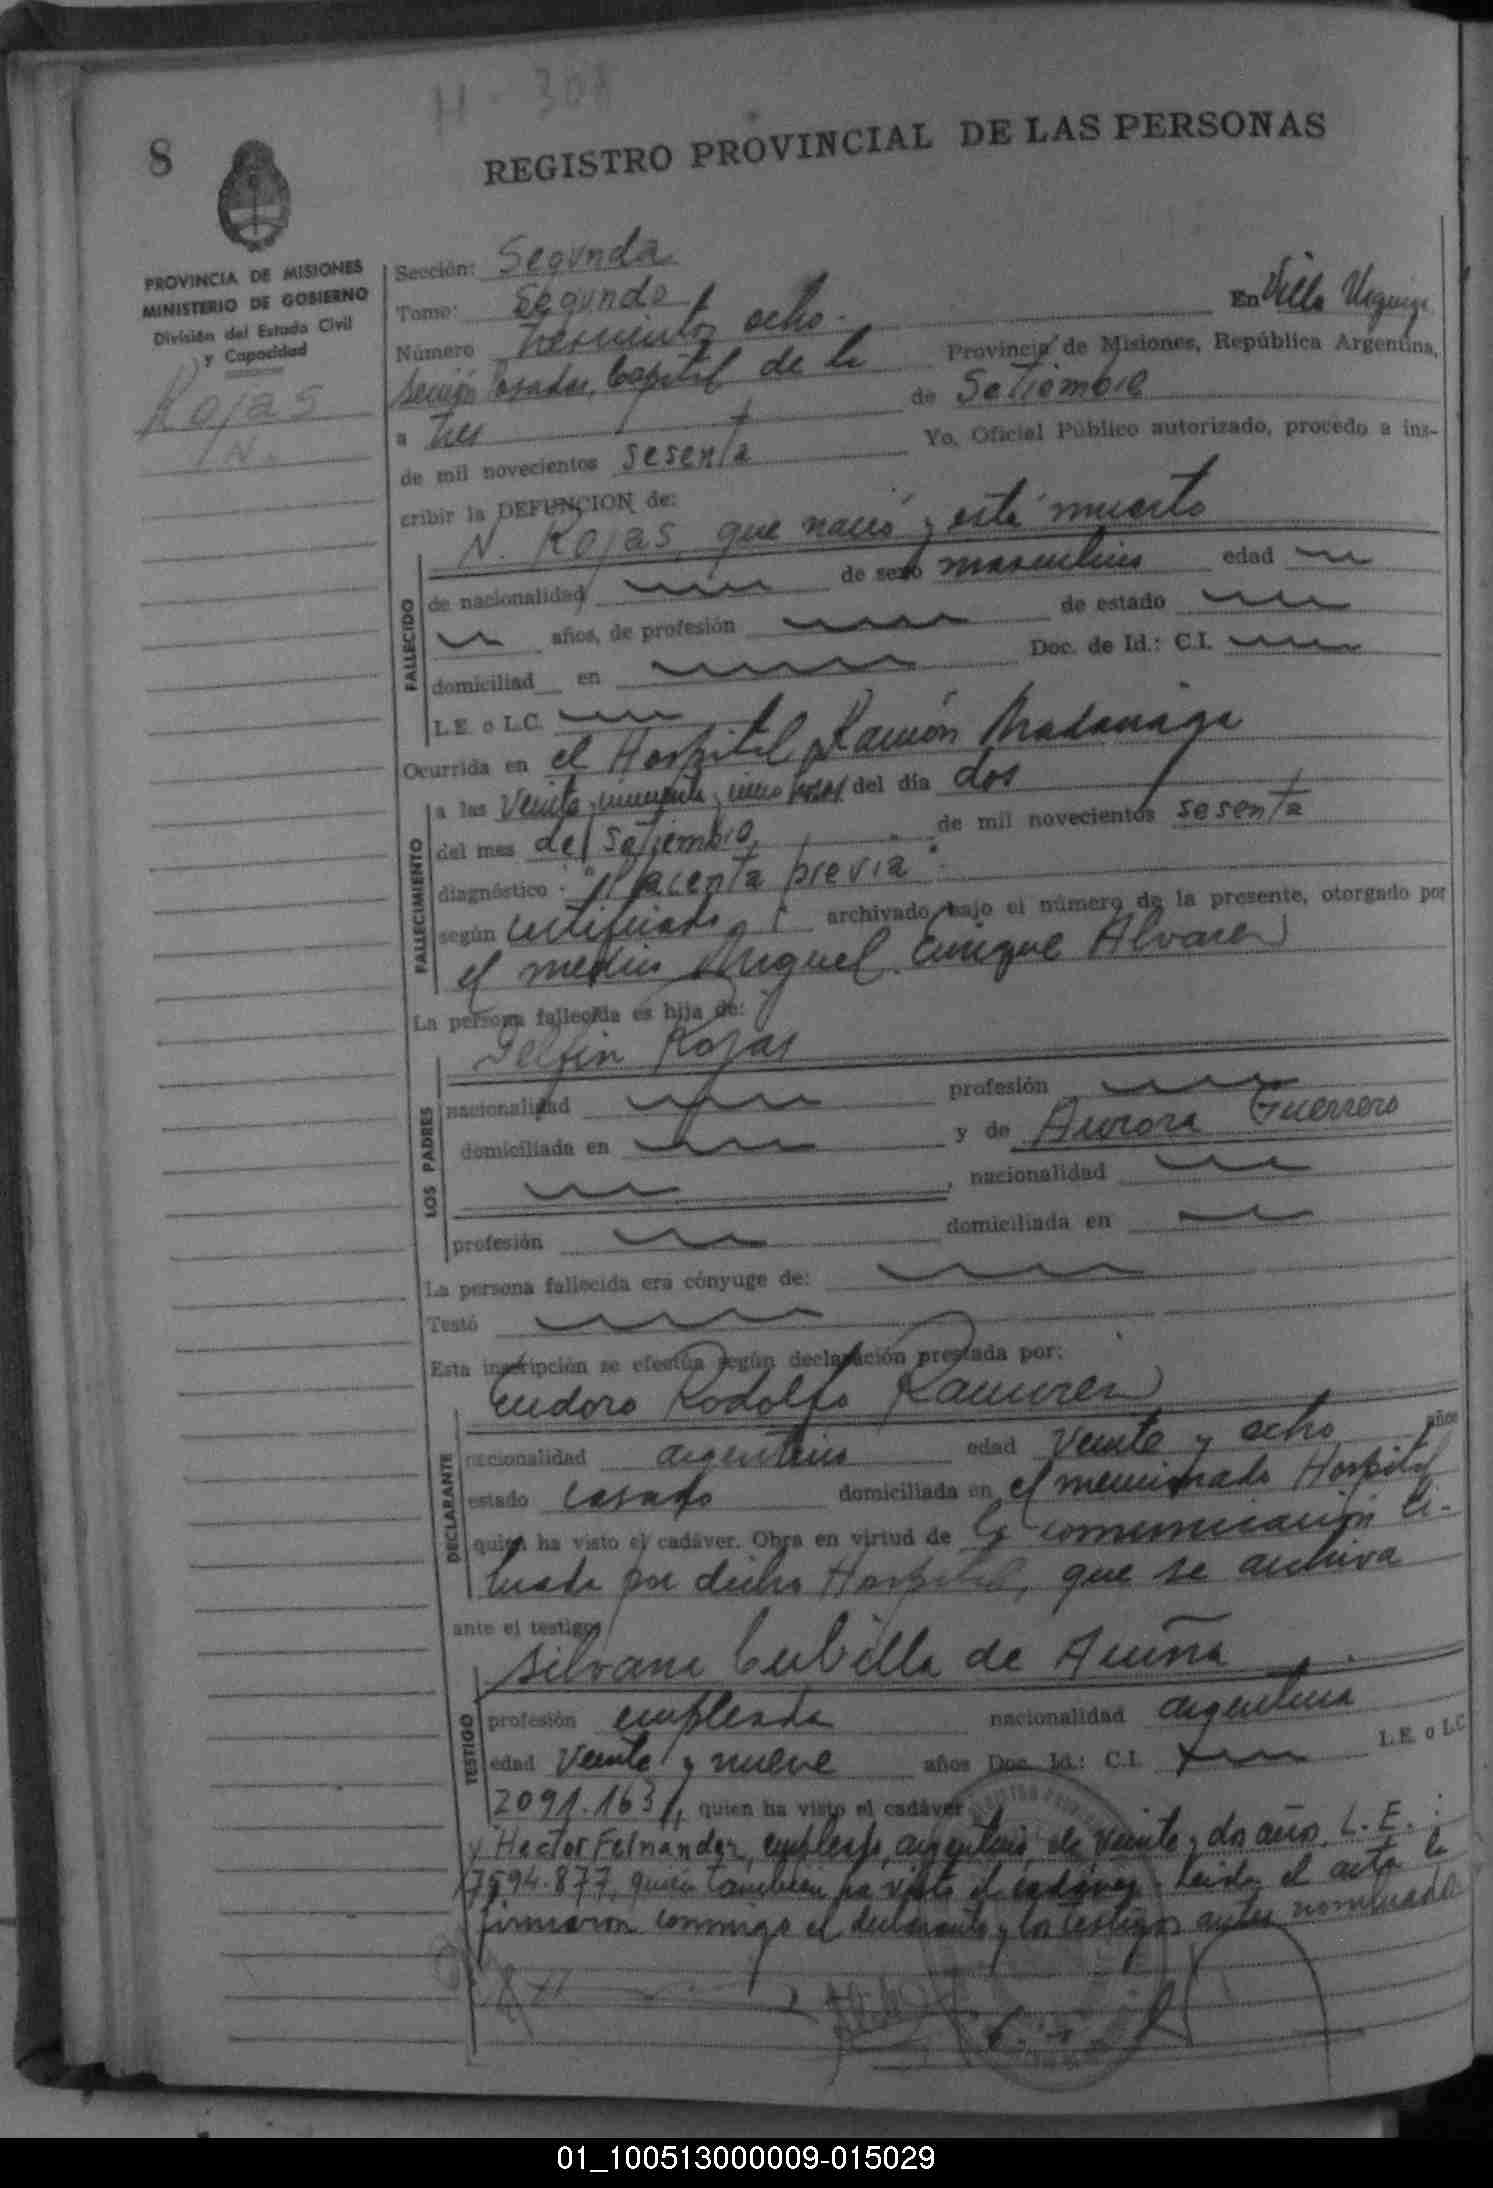 H - 308
8
REGISTRO PROVINCIAL DE LAS PERSONAS
PROVINCIA DE MISIONES
MINISTERIO DE GOBIERNO
División del Estado Civil
y Capacidad
Rojas
N.
Sección: Segunda
Tomo: Segundo
Número trescientos ocho. En Villa Urquiza
sección Posadas, Capital de la Provincia de Misiones, República Argentina,
a tres de Setiembre
de mil novecientos sesenta Yo, Oficial Público autorizado, procedo a ins-
cribir la DEFUNCION de:
N. Rojas, que nació y está muerto
FALLECIDO
de nacionalidad de sexo masculino edad
años, de profesión de estado
domiciliad en Doc. de Id.: C.I.
L.E. o L.C.
Ocurrida en el Hospital Ramón Madariaga
FALLECIMIENTO
a las veinte y cincuenta y cinco horas del día dos
del mes de setiembre de mil novecientos sesenta
diagnóstico: "Placenta previa"
según certificado archivado bajo el número de la presente, otorgado por
el médico Miguel Enrique Alvarez
La persona fallecida es hija de:
Delfin Rojas
LOS PADRES
nacionalidad profesión
domiciliada en y de Aurora Guerrero
, nacionalidad
profesión domiciliada en
La persona fallecida era cónyuge de:
Testó
Esta inscripción se efectúa según declaración prestada por:
Eudoro Rodolfo Ramirez
DECLARANTE
nacionalidad argentino edad veinte y ocho años
estado casado domiciliada en el mencionado Hospital
quien ha visto el cadáver. Obra en virtud de la comunicación li-
brada por dicho Hospital, que se archiva
ante el testigo
Silvana Cubilla de Acuña
TESTIGO
profesión empleada nacionalidad argentina
edad veinte y nueve años Doc. Id.: C.I. L.E. o L.C.
2091.163, quien ha visto el cadáver
y Hector Fernandez, empleado, argentino, de veinte y dos años, L.E.:
7594.877, quien también ha visto el cadáver. Leida el acta la
firmaron conmigo el declarante y los testigos antes nominados
01_100513000009-015029